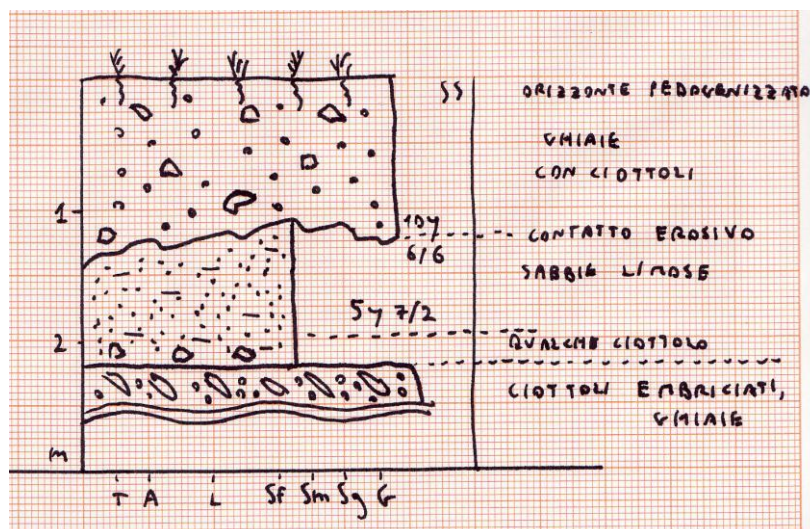 SS
ORIZZONTE PEDOGENIZZATO
GHIAIE
CON CIOTTOLI
1
10Y
6/6
CONTATTO EROSIVO
SABBIE LIMOSE
5Y 7/2
2
QUALCHE CIOTTOLO
CIOTTOLI EMBRICIATI,
GHIAIE
m
T A L Sf Sm Sg G